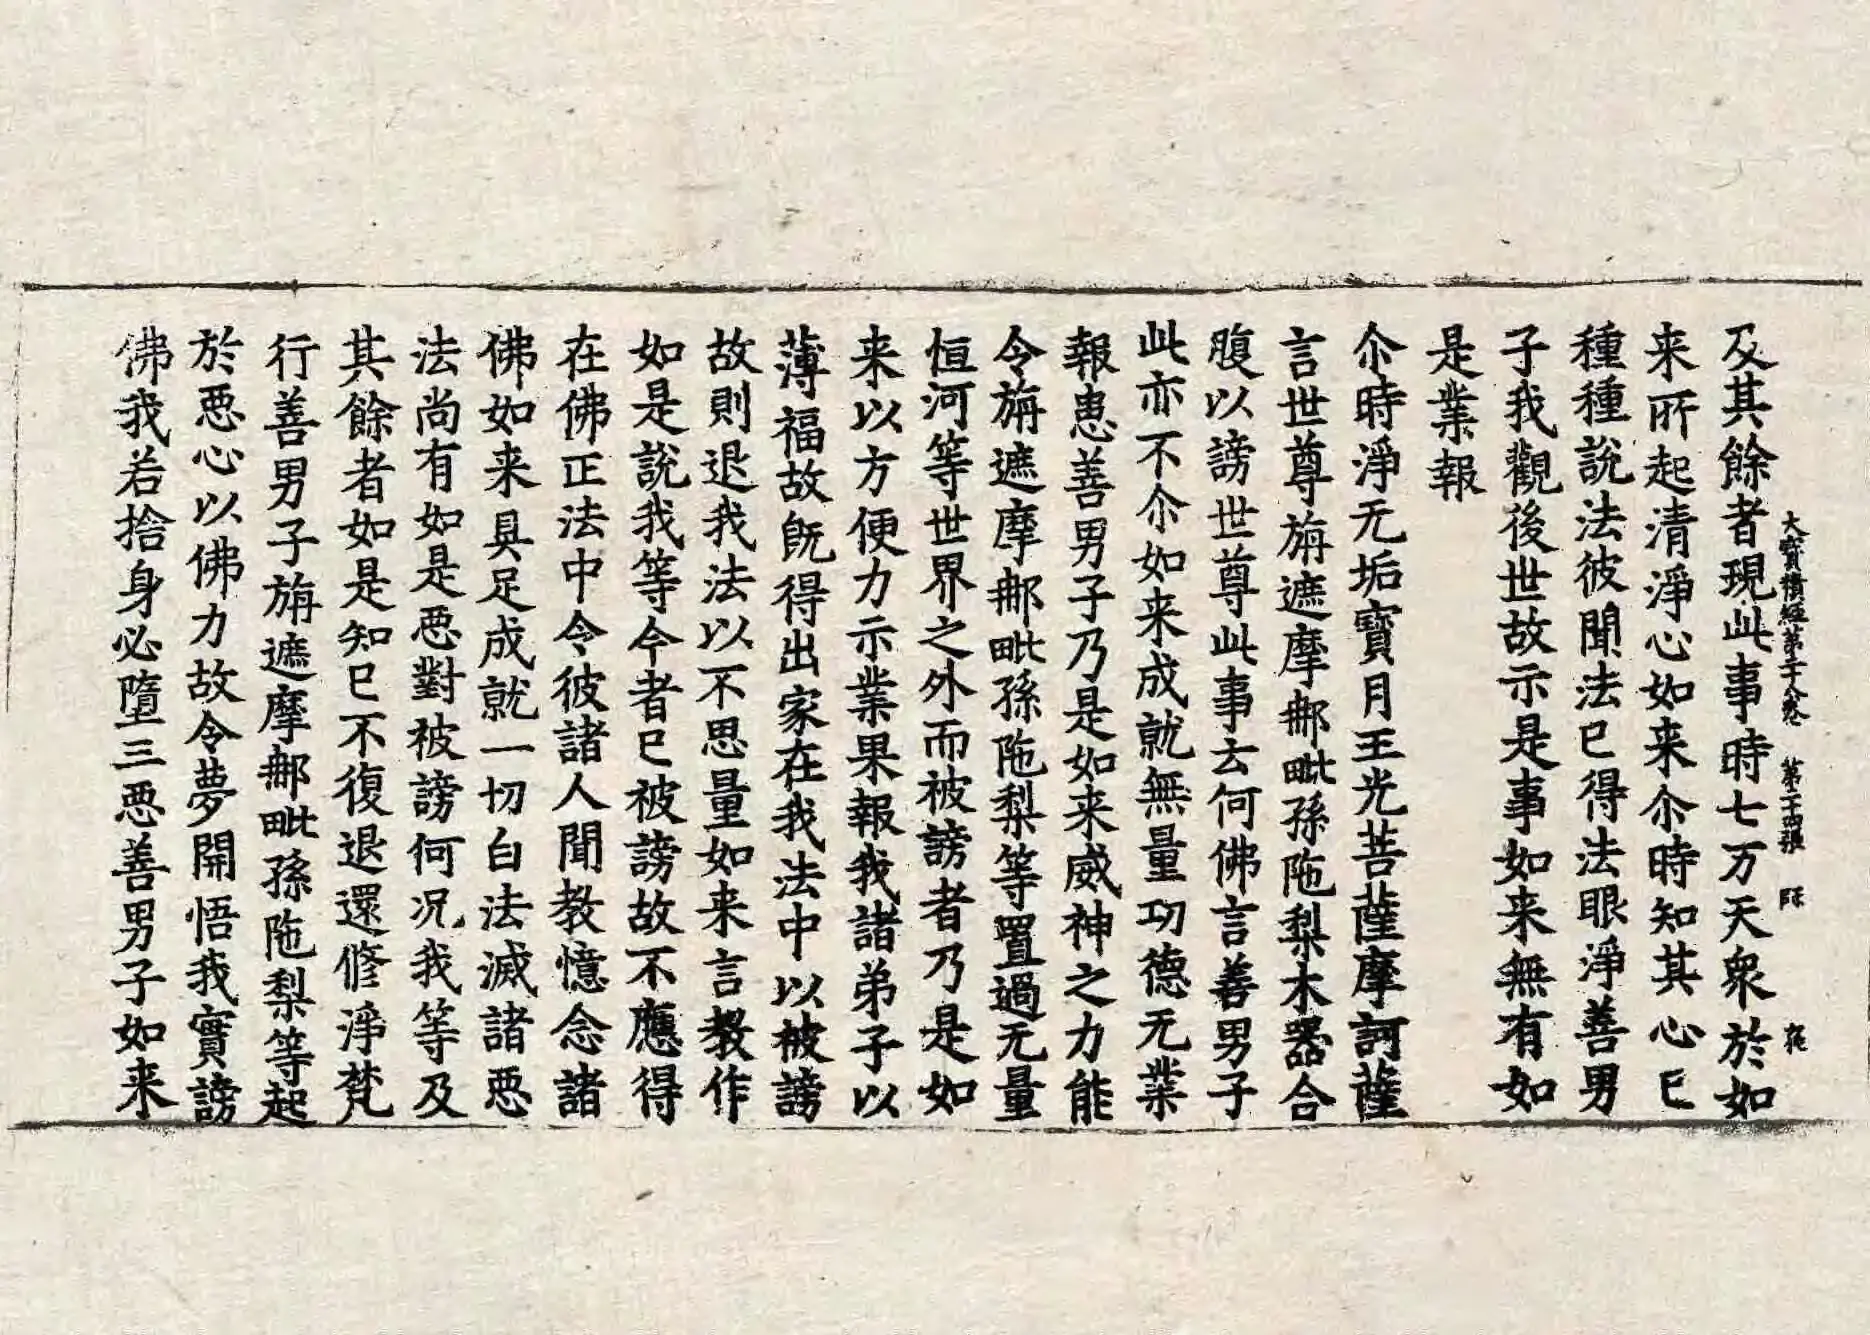 大寳積經第二十八卷 第二十四張
及其餘者現此事時七万天衆於如
来所起清淨心如来尒時知其心已
種種說法彼聞法已得法眼淨善男
子我觀後世故示是事如来無有如
是業報
尒時淨无垢寳月王光菩薩摩訶薩
言世尊旃遮摩那毗孫陁梨木器合
腹以謗世尊此事云何佛言善男子
此亦不尒如来成就無量功德无業
報患善男子乃是如来威神之力能
令旃遮摩那毗孫陁梨等置過无量
恒河等世界之外而被謗者乃是如
来以方便力示業果報我諸弟子以
薄福故旣得出家在我法中以被謗
故則退我法以不思量如来言教作
如是說我等今者已被謗故不應得
在佛正法中令彼諸人聞教憶念諸
佛如来具足成就一切白法滅諸惡
法尚有如是惡對被謗何况我等及
其餘者如是知已不復退還修淨梵
行善男子旃遮摩那毗孫陁梨等起
於惡心以佛力故令夢開悟我實謗
佛我若捨身必墮三惡善男子如来